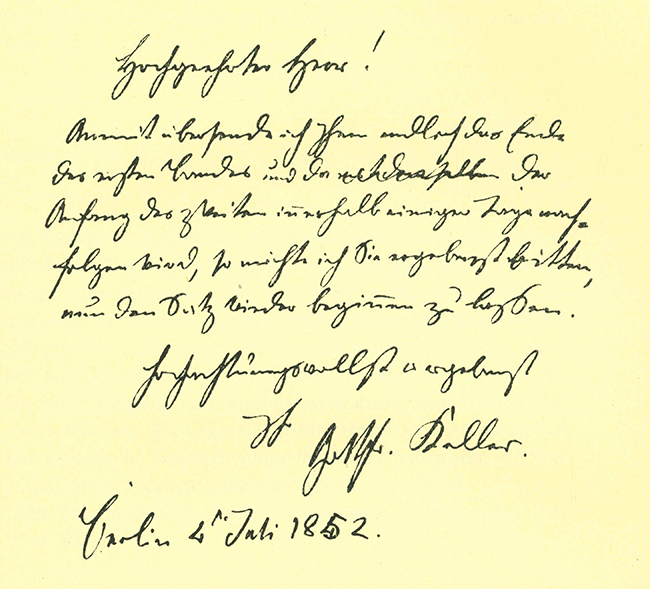 Hochgeehrter Herr!
Anmit übersende ich Ihnen endlich das Ende
des ersten Bandes und da der
Anfang des zweiten innerhalb einiger Tage nach=
folgen wird, so möchte ich Sie ergebenst bitten,
nun den Satz wieder beginnen zu lassen.
hochachtungsvollst u ergebenst
Ihr
Gottfr. Keller.
Berlin 4 Juli 1852.